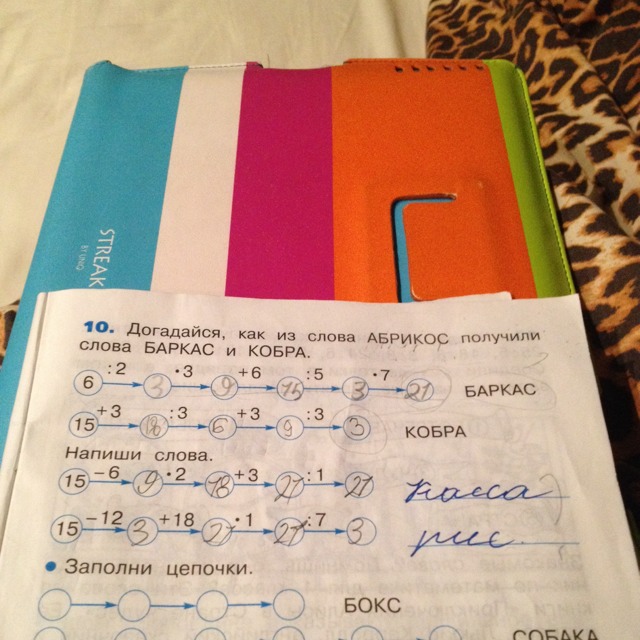 STREAK
BY UNIQ
10. Догадайся, как из слова АБРИКОС получили
слова БАРКАС и КОБРА.
6 :2 3 ·3 9 +6 15 :5 3 ·7 21 БАРКАС
15 +3 18 :3 6 +3 9 :3 3 КОБРА
Напиши слова.
15 −6 9 ·2 18 +3 21 :1 21 касса
15 −12 3 +18 21 ·1 21 :7 3 рис
• Заполни цепочки.
БОКС
СОБАКА